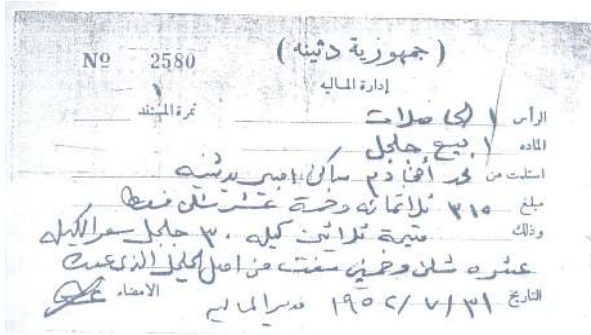 ( جمهورية دثينه )
Nº 2580
إدارة الماليه
نمرة المستند ١
الرأس ١ الحاصلات
الماده ١ بيع جلجل
استلمت من محمد ساكن امبير بدثينه
مبلغ ٣١٥ ثلاثمائه وخمسة عشر شلن فقط
وذلك قيمة ثلاثين كيله ٣٠ جلجل سعر الكيله
عشره شلن وخمسين سنت من اصل الجلجل الذي
التاريخ ٣١/٧/١٩٥٢ مدير الماليه الامضاء